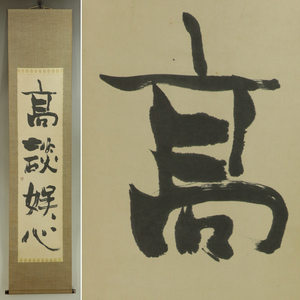 高談娯心
高